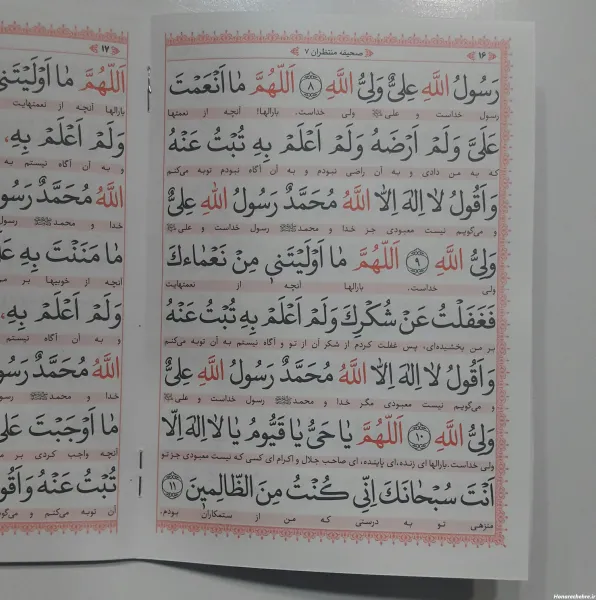 ۱۶
صحیفه منتظران ۷
رَسُولُ اللَّهِ عِلِىٌّ وَلِىُّ اللَّهِ ۸ اَللَّهُمَّ مٰا اَنْعَمْتَ
رسول خداست و علی ولی خداست. بارالها! آنچه از نعمتها
عَلَىَّ وَلَمْ اَرْضَهُ وَلَمْ اَعْلَمْ بِهِ تُبْتُ عَنْهُ
که به من دادی و به آن راضی نبودم و به آن آگاه نبودم توبه می‌کنم
وَ اَقُولُ لاٰ اِلٰهَ اِلاَّ اللَّهُ مُحَمَّدٌ رَسُولُ اللهِ عِلىٌّ
و می‌گویم نیست معبودی جز خدا و محمد ﷺ رسول خداست و علی
وَلِىُّ اللَّهِ ۹ اَللَّهُمَّ مٰا اَوْلَيْتَنى مِنْ نَعْمٰاءِكَ
ولی خداست. بارالها آنچه از نعمتهایت
فَغَفَلْتُ عَنْ شُكْرِكَ وَلَمْ اَعْلَمْ بِهِ تُبْتُ عَنْهُ
بر من بخشیده‌ای، پس غفلت کردم از شکر آن از تو و آگاه نیستم به آن توبه می‌کنم
وَ اَقُولُ لاٰ اِلٰهَ اِلاَّ اللَّهُ مُحَمَّدٌ رَسُولُ اللَّهِ عِلِىٌّ
و می‌گویم نیست معبودی مگر خدا و محمد ﷺ رسول خداست و علی
وَلِىُّ اللَّهِ ۱۰ اَللَّهُمَّ يٰا حَىُّ يٰا قَيُّومُ يٰا لاٰ اِلٰهَ اِلّا
ولی خداست. بارالها ای زنده، ای پاینده، ای صاحب جلال و اکرام ای کسی که نیست معبودی جز تو
اَنْتَ سُبْحٰانَكَ اِنّى كُنْتُ مِنَ الظّٰالِمينَ ۱۱
منزهی تو به درستی که من از ستمکاران بودم.
۱۷
اَللَّهُمَّ مٰا اَوْلَيْتَنى
بارالها آنچه از نعمتهایت
وَلَمْ اَعْلَمْ بِهِ،
و به آن آگاه نیستم به
اللَّهُ مُحَمَّدٌ رَسُو
خدا و محمد ﷺ رسول
مٰا مَنَنْتَ بِهِ عَلَ
آنچه از خوبیها بر م
وَلَمْ اَعْلَمْ بِهِ،
و به آن آگاه نیستم
اللَّهُ مُحَمَّدٌ رَسُو
خدا و محمد ﷺ رسو
مٰا اَوْجَبْتَ عَلَى
آنچه واجب کردی بر م
تُبْتُ عَنْهُ وَ اَقُو
آن توبه می‌کنم و می‌گو
Honarechehre.ir